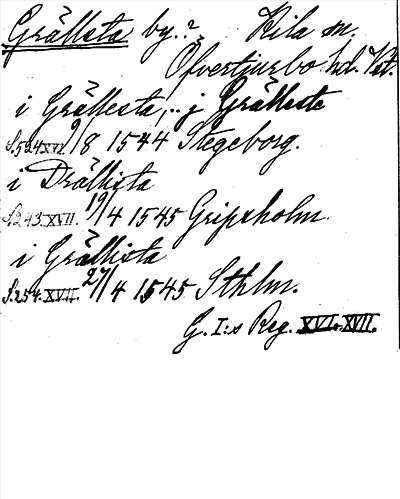 Grällsta by.? Kila sn.
Öfvertjurbo hd. Vst.
i Grällesta, .. j Grälleste
S. 524 XVI. 9/8 1544 Stegeborg.
i Drällista
S. 243. XVII. 19/4 1545 Gripsholm
i Grällista
S. 254. XVII. 27/4 1545 Sthlm.
G. I:s Reg. XVI. XVII.